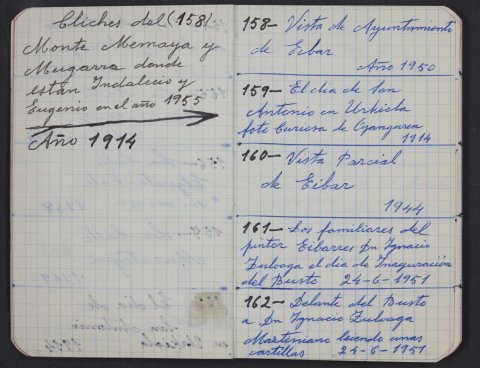 Cliches del (158)
Monte Memaya y
Mugarra donde
estan Indalecio y
Eugenio en el año 1955
Año 1914
158- Vista de Ayuntamiento
de Eibar
Año 1950
159- El dia de San
Antonio en Urkiola
foto Curiosa de Ojanguren
1914
160- Vista Parcial
de Eibar
1944
161- Los familiares del
pintor Eibarres Dn Ignacio
Zuloaga el dia de Inaguración
del Busto 24-6-1951
162- Delante del Busto
a Dn Ignacio Zuloaga
Martiniano leiendo unas
cartillas 24-6-1951